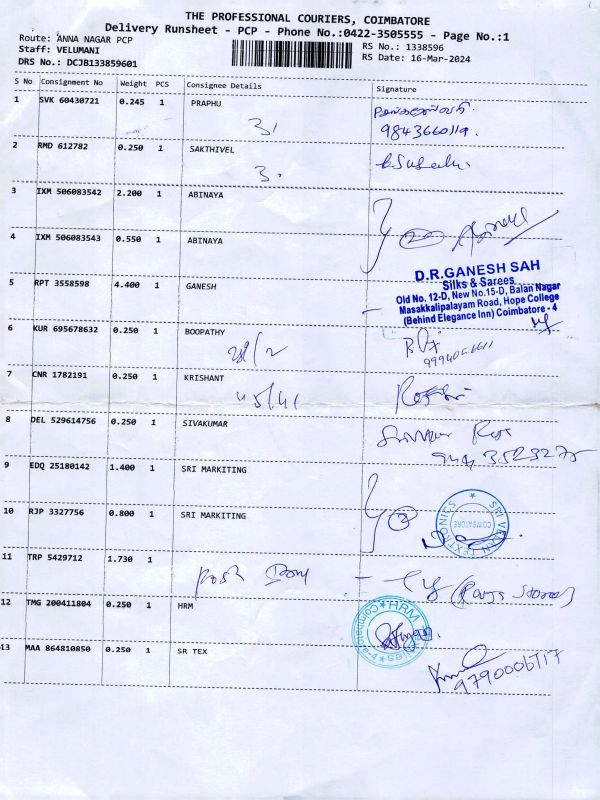 THE PROFESSIONAL COURIERS, COIMBATORE
Delivery Runsheet - PCP - Phone No.:0422-3505555 - Page No.:1
Route: ANNA NAGAR PCP
RS No.: 1338596
Staff: VELUMANI
RS Date: 16-Mar-2024
DRS No.: DCJB133859601
S No Consignment No Weight PCS Consignee Details Signature
1 SVK 60430721 0.245 1 PRAPHU
31 9843660119.
2 RMD 612782 0.250 1 SAKTHIVEL
3.
3 IXM 506083542 2.200 1 ABINAYA
4 IXM 506083543 0.550 1 ABINAYA
D.R.GANESH SAH
Silks & Sarees
Old No. 12-D, New No.15-D, Balan Nagar
Masakkalipalayam Road, Hope College
(Behind Elegance Inn) Coimbatore - 4
5 RPT 3558598 4.400 1 GANESH
6 KUR 695678632 0.250 1 BOOPATHY
7 CNR 1782191 0.250 1 KRISHANT
45/41
8 DEL 529614756 0.250 1 SIVAKUMAR
9 EDQ 25180142 1.400 1 SRI MARKITING
10 RJP 3327756 0.800 1 SRI MARKITING
2
COIMBATORE
11 TRP 5429712 1.730 1
12 TMG 200411804 0.250 1 HRM
HRM
13 MAA 864810850 0.250 1 SR TEX
9790006717